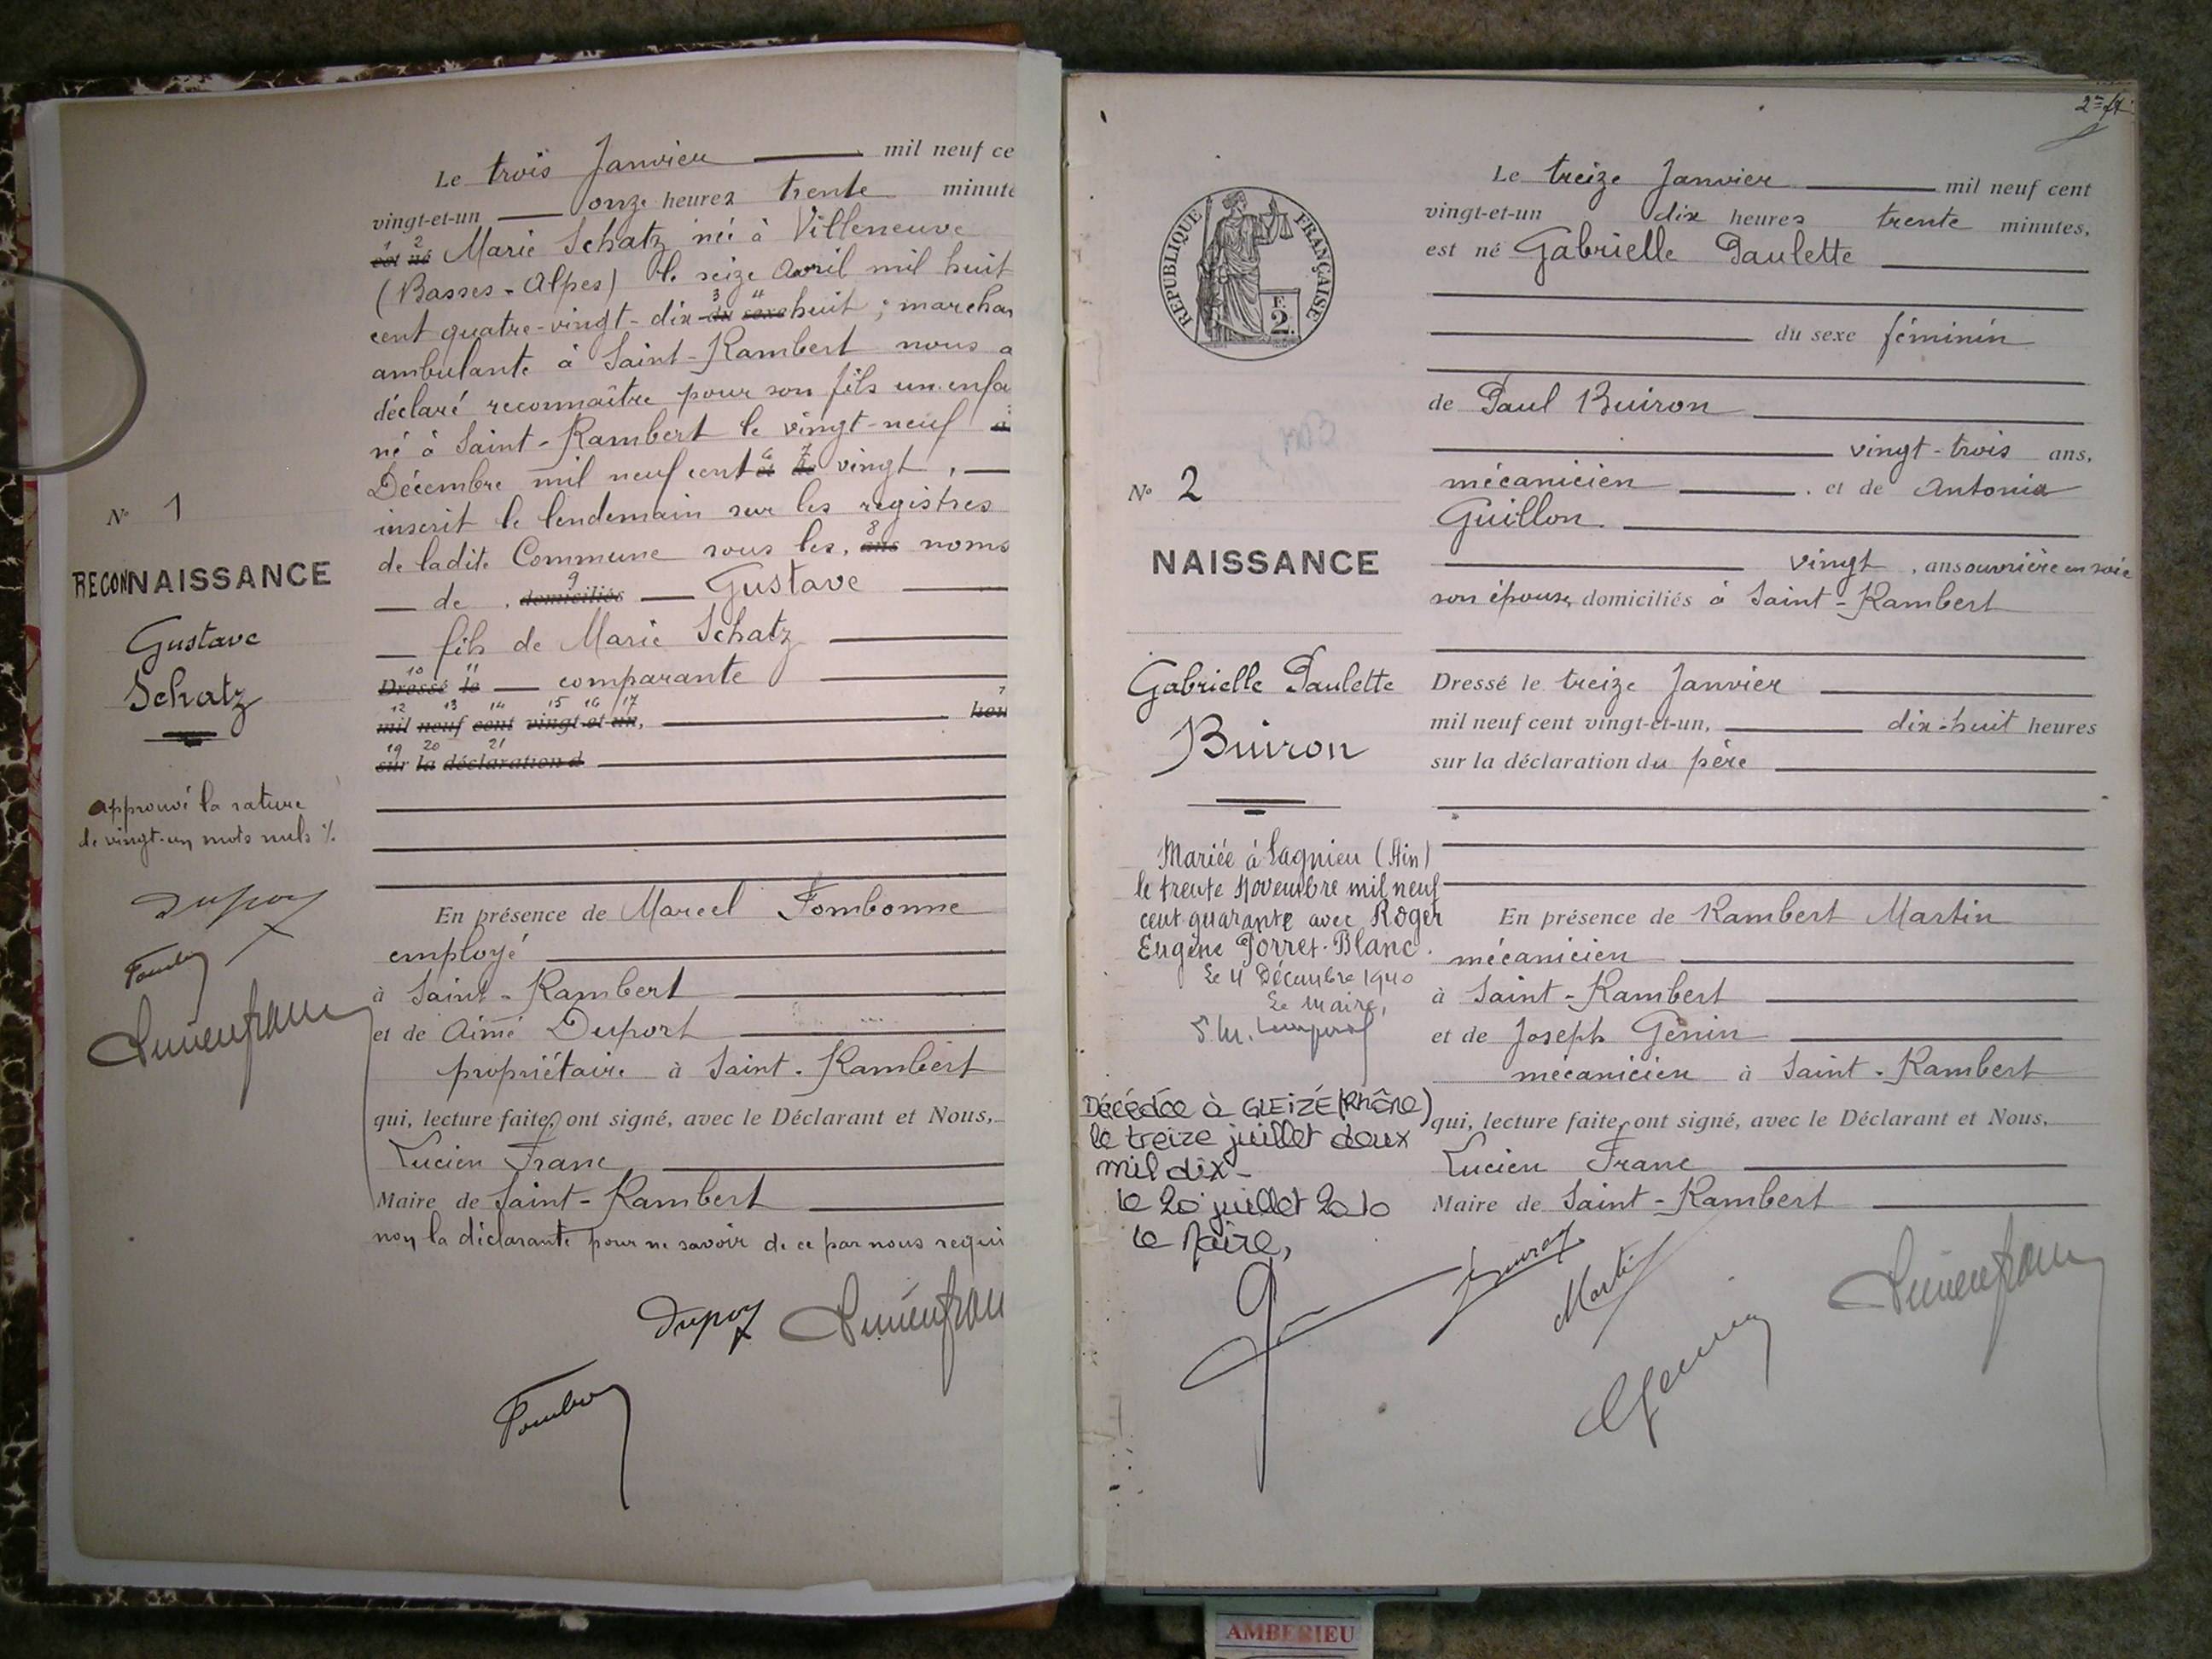 Le trois Janvier mil neuf ce
vingt-et-un onze heures trente minute
1 2
est né Marie Schatz née à Villeneuve
(Basses-Alpes) le seize avril mil huit
3 4
cent quatre-vingt-dix-du sexe huit ; marchan
ambulante à Saint-Rambert nous a
déclaré reconnaître pour son fils un enfa
né à Saint-Rambert le vingt-neuf
6 7
Décembre mil neuf cent et de vingt,
inscrit le lendemain sur les registres
8
de ladite Commune sous les, ans noms
9
de , domiciliés Gustave
fils de Marie Schatz
10 11
Dressé le comparante
12 13 14 15 16 17
mil neuf cent vingt-et-un, heu
19 20 21
sur la déclaration d
N° 1
RECONNAISSANCE
Gustave
Schatz
approuvé la rature
de vingt-un mots nuls
Dupor
Lucien franc
En présence de Marcel Fombonne
employé
à Saint-Rambert
et de Aimé Duport
propriétaire à Saint-Rambert
qui, lecture faite, ont signé, avec le Déclarant et Nous,
Lucien Franc
Maire de Saint-Rambert
non la déclarante pour ne savoir de ce par nous requi
Lucien fran
2e ft
REPUBLIQUE FRANÇAISE
F.
2.
Le treize Janvier mil neuf cent
vingt-et-un dix heures trente minutes,
est né Gabrielle Paulette
du sexe féminin
de Paul Buiron
vingt-trois ans,
mécanicien , et de Antonia
Guillon
vingt , ans ouvrière en soie
son épouse, domiciliés à Saint-Rambert
Dressé le treize Janvier
mil neuf cent vingt-et-un, dix-huit heures
sur la déclaration du père
N° 2
NAISSANCE
Gabrielle Paulette
Buiron
Mariée à Lagnieu (Ain)
le trente Novembre mil neuf
cent quarante avec Roger
Eugène Porret-Blanc.
Le 4 Décembre 1940
Le Maire,
Décédée à GLEIZÉ (Rhône)
le treize juillet deux
mil dix-
le 20 juillet 2010
le Maire,
En présence de Rambert Martin
mécanicien
à Saint-Rambert
et de Joseph Genin
mécanicien à Saint-Rambert
qui, lecture faite, ont signé, avec le Déclarant et Nous,
Lucien Franc
Maire de Saint-Rambert
Martin
Genin
Lucien franc
AMBERIEU